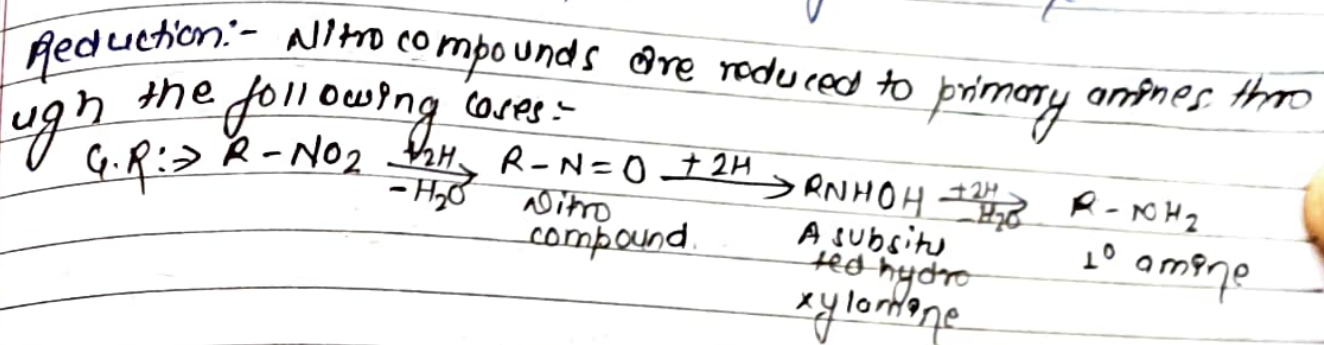 Reduction:- Nitro compounds are reduced to primary amines thro
ugh the following cases:-
G.R:⇒ R-NO2 +2H → -H2O R-N=O +2H → RNHOH +2H → -H2O R-NH2
Nitro compound. A subsitu ted hydro xylamine 1º amine